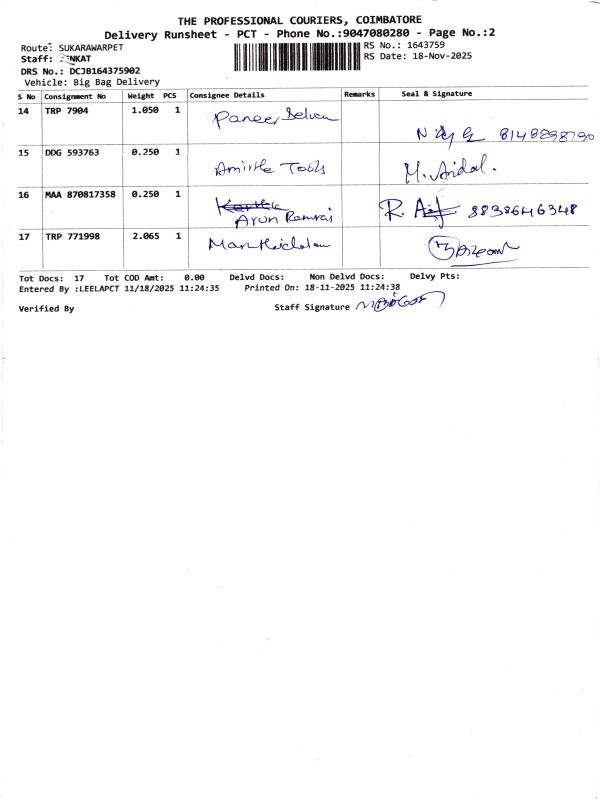 THE PROFESSIONAL COURIERS, COIMBATORE
Delivery Runsheet - PCT - Phone No.:9047080280 - Page No.:2
Route: SUKARAWARPET
RS No.: 1643759
Staff: VENKAT
RS Date: 18-Nov-2025
DRS No.: DCJB164375902
Vehicle: Big Bag Delivery
S No Consignment No Weight PCS Consignee Details Remarks Seal & Signature
14 TRP 7904 1.050 1 Paneer Selvam
8148298790
15 DDG 593763 0.250 1 Amirthe Tools M. Aridal.
16 MAA 870817358 0.250 1 Karthik R. 8838646348
Arun Ramraj
17 TRP 771998 2.065 1
Tot Docs: 17 Tot COD Amt: 0.00 Delvd Docs: Non Delvd Docs: Delvy Pts:
Entered By :LEELAPCT 11/18/2025 11:24:35 Printed On: 18-11-2025 11:24:38
Verified By Staff Signature